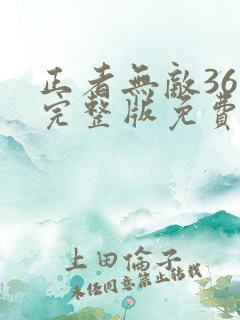 正者無敵36
完整版免費
上田倫子
未经同意禁止转载